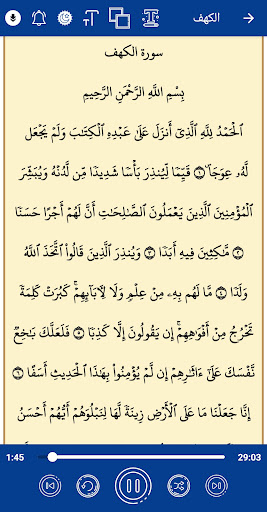 الكهف
سورة الكهف
بِسْمِ اللَّهِ الرَّحْمَٰنِ الرَّحِيمِ
ٱلْحَمْدُ لِلَّهِ ٱلَّذِىٓ أَنزَلَ عَلَىٰ عَبْدِهِ ٱلْكِتَٰبَ وَلَمْ يَجْعَل
لَّهُۥ عِوَجَاۜ ١ قَيِّمًا لِّيُنذِرَ بَأْسًا شَدِيدًا مِّن لَّدُنْهُ وَيُبَشِّرَ
ٱلْمُؤْمِنِينَ ٱلَّذِينَ يَعْمَلُونَ ٱلصَّٰلِحَٰتِ أَنَّ لَهُمْ أَجْرًا حَسَنًا
٢ مَّٰكِثِينَ فِيهِ أَبَدًا ٣ وَيُنذِرَ ٱلَّذِينَ قَالُوا۟ ٱتَّخَذَ ٱللَّهُ
وَلَدًا ٤ مَّا لَهُم بِهِۦ مِنْ عِلْمٍ وَلَا لِـَٔابَآئِهِمْ ۚ كَبُرَتْ كَلِمَةً
تَخْرُجُ مِنْ أَفْوَٰهِهِمْ ۚ إِن يَقُولُونَ إِلَّا كَذِبًا ٥ فَلَعَلَّكَ بَٰخِعٌ
نَّفْسَكَ عَلَىٰٓ ءَاثَٰرِهِمْ إِن لَّمْ يُؤْمِنُوا۟ بِهَٰذَا ٱلْحَدِيثِ أَسَفًا ٦
إِنَّا جَعَلْنَا مَا عَلَى ٱلْأَرْضِ زِينَةً لَّهَا لِنَبْلُوَهُمْ أَيُّهُمْ أَحْسَنُ
1:45
29:03